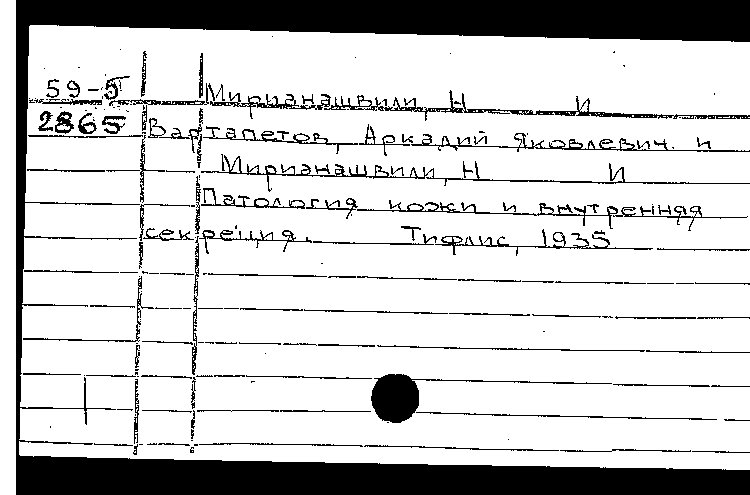 59-5 Мирианашвили, Н И
2865 Вартапетов, Аркадий Яковлевич. и
Мирианашвили, Н И
Патология кожи и внутренняя
секреция. Тифлис, 1935